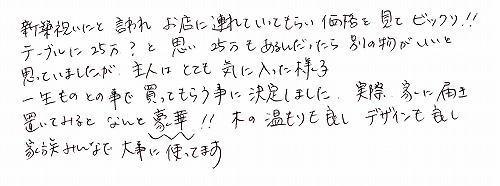 新築祝いにと言われ お店に連れていってもらい 価格を見てビックリ!!
テーブルに25万?と思い 25万もあるんだったら 別の物がいいと
思っていましたが、主人はとても気に入った様子
一生ものとの事で買ってもらう事に決定しました。実際、家に届き
置いてみるとなんと豪華!! 木の温もりも良し デザインも良し
家族みんなで大事に使ってます